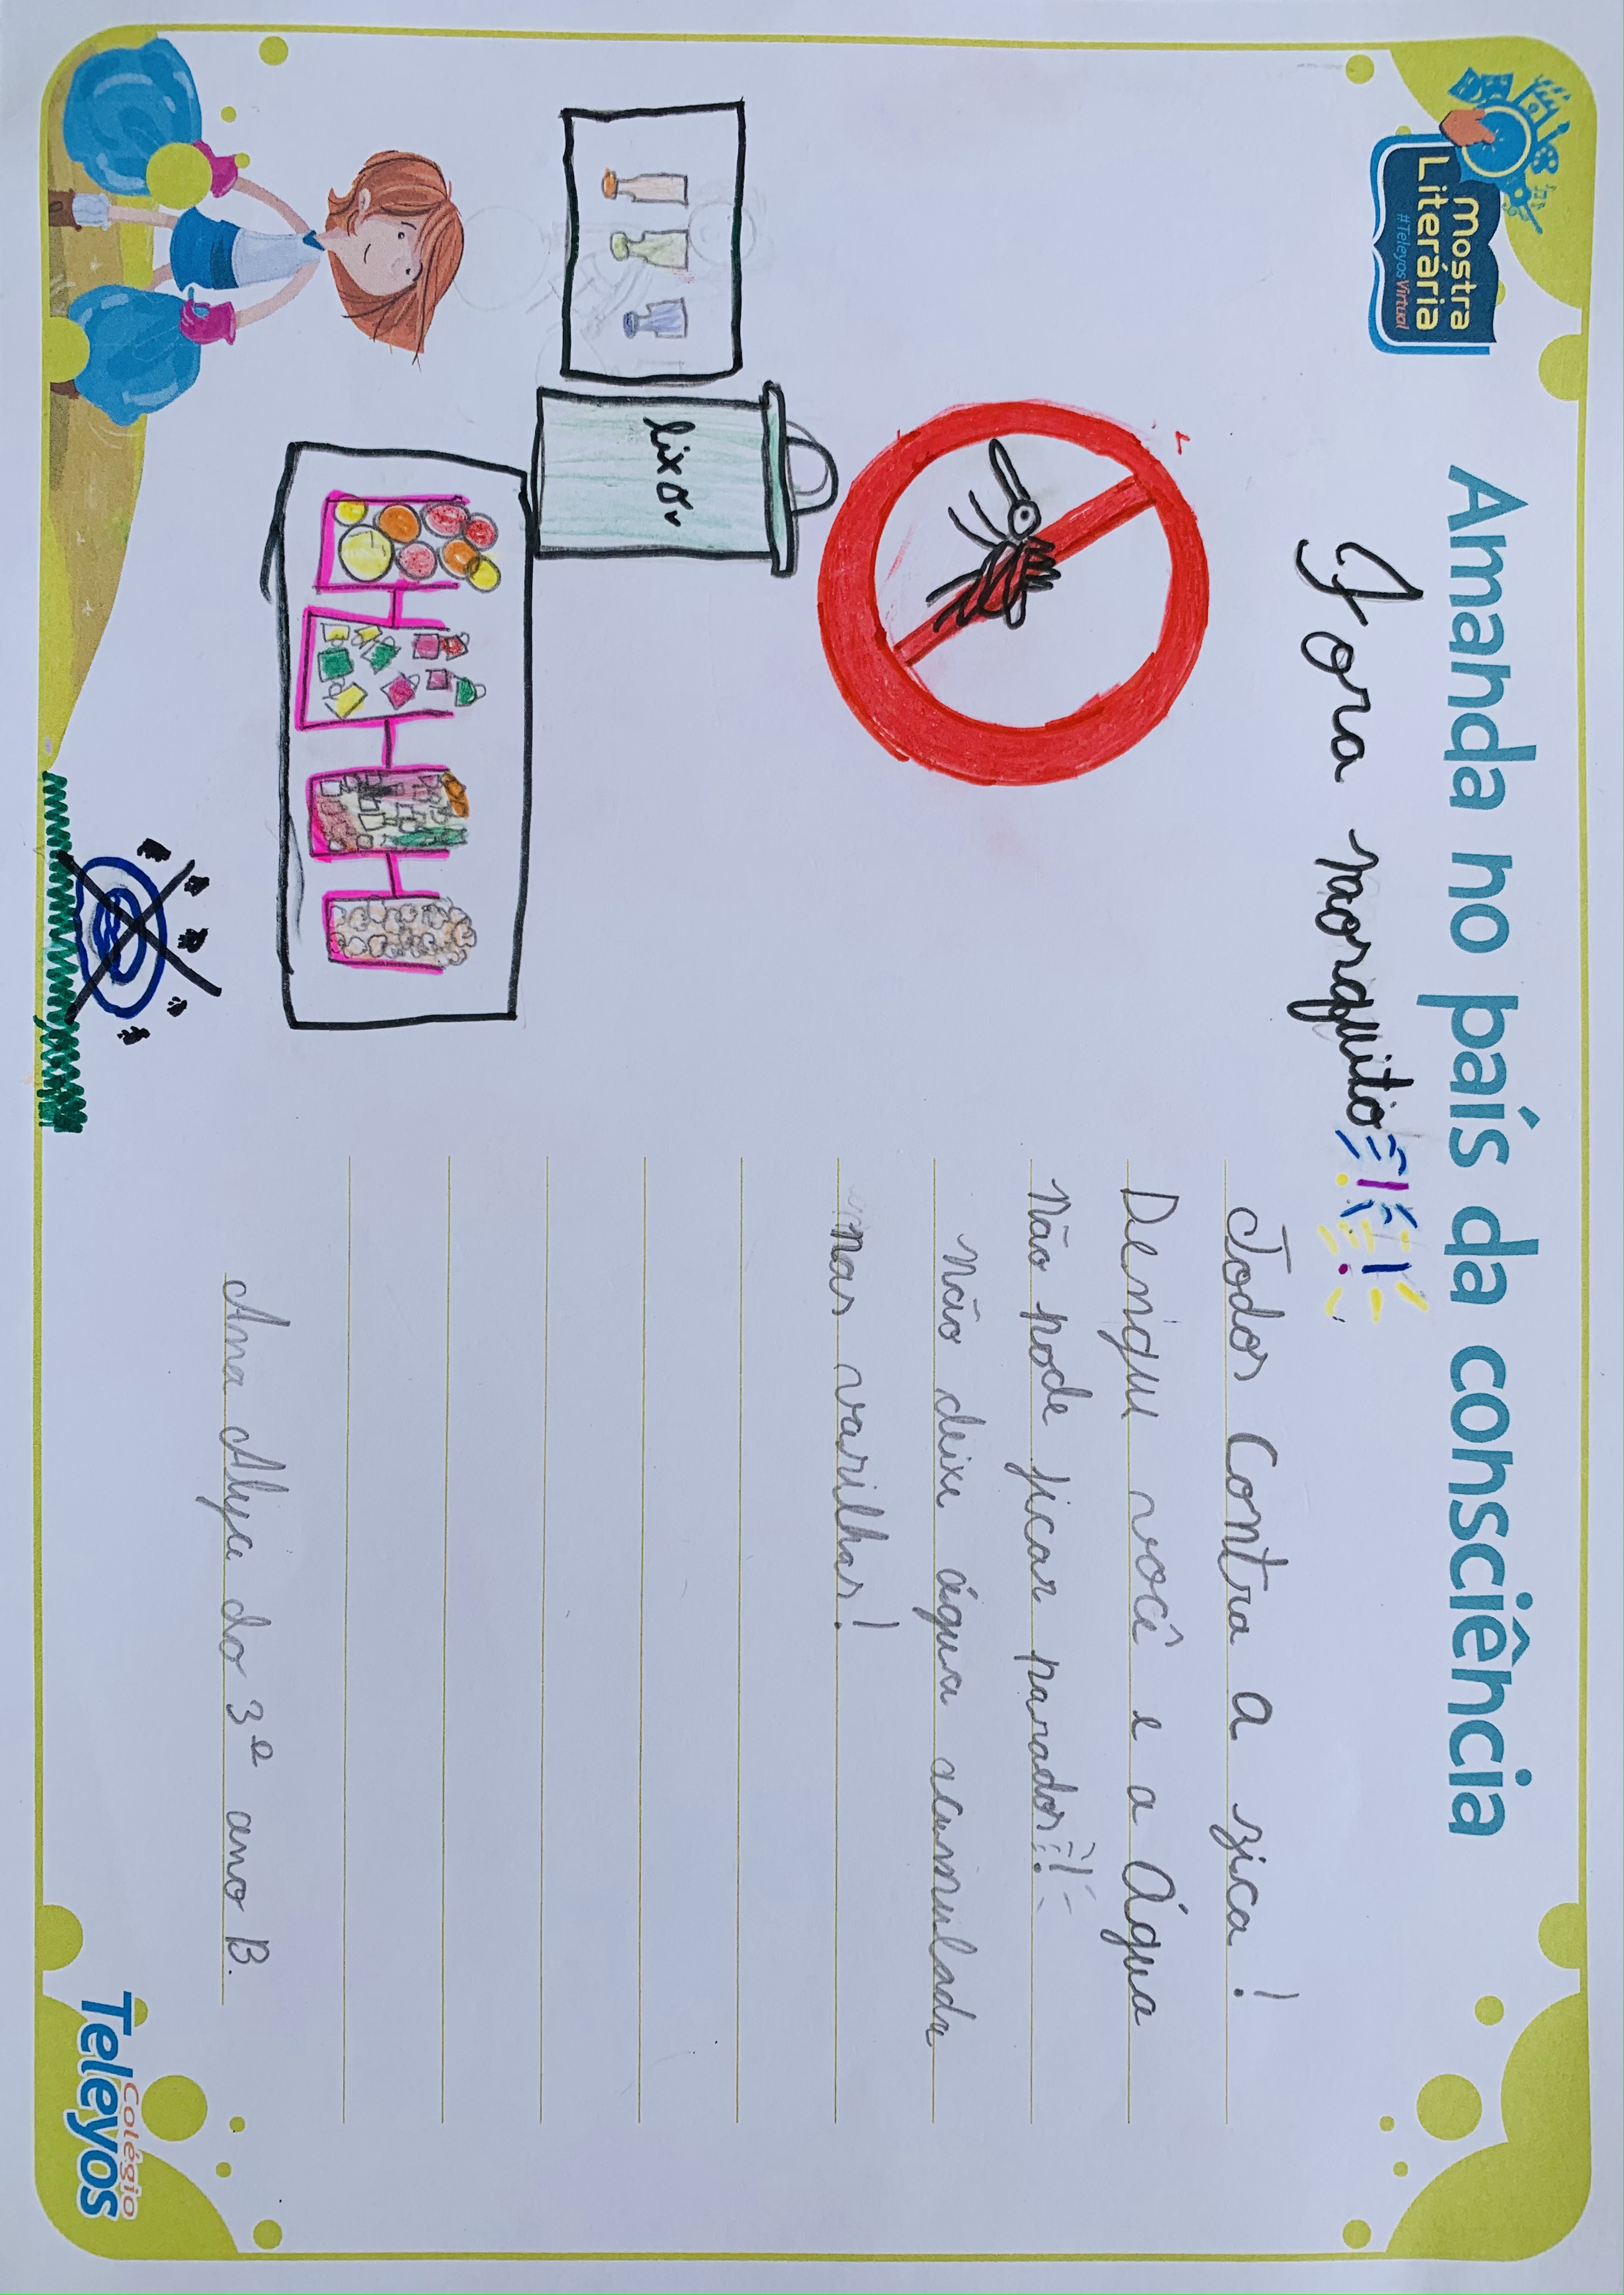 Mostra
Literária
#TeleyosVirtual
Amanda no país da consciência
Fora mosquito!!
lixo
Todos Contra a zica!
Dengui você e a Água
não pode ficar parados!!
não deixe água acumulada
nas vasilhas!
Ana Alyce do 3º ano B.
Colégio
Teleyos